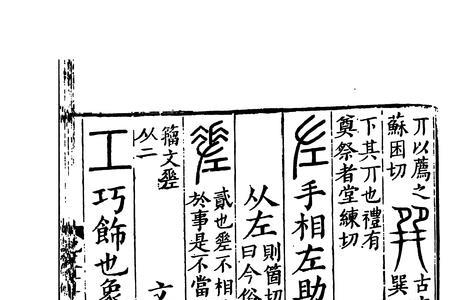 丌以薦之
蘇困切
古
巽
下其丌也禮有
奠祭者堂練切
手相左助
从左
則箇切
曰今俗
貳也𢀩不相
於事是不當
籀文𢀩
从二
文
工 巧飾也象